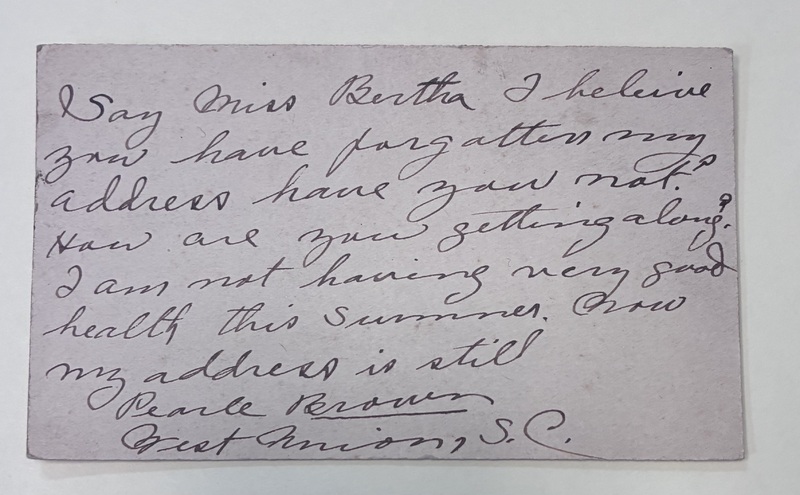 Say Miss Bertha I beleive
you have forgotten my
address have you not?
How are you getting along?
I am not having very good
health this Summer. Now
my address is still
Pearle Brown
West Union, S.C.